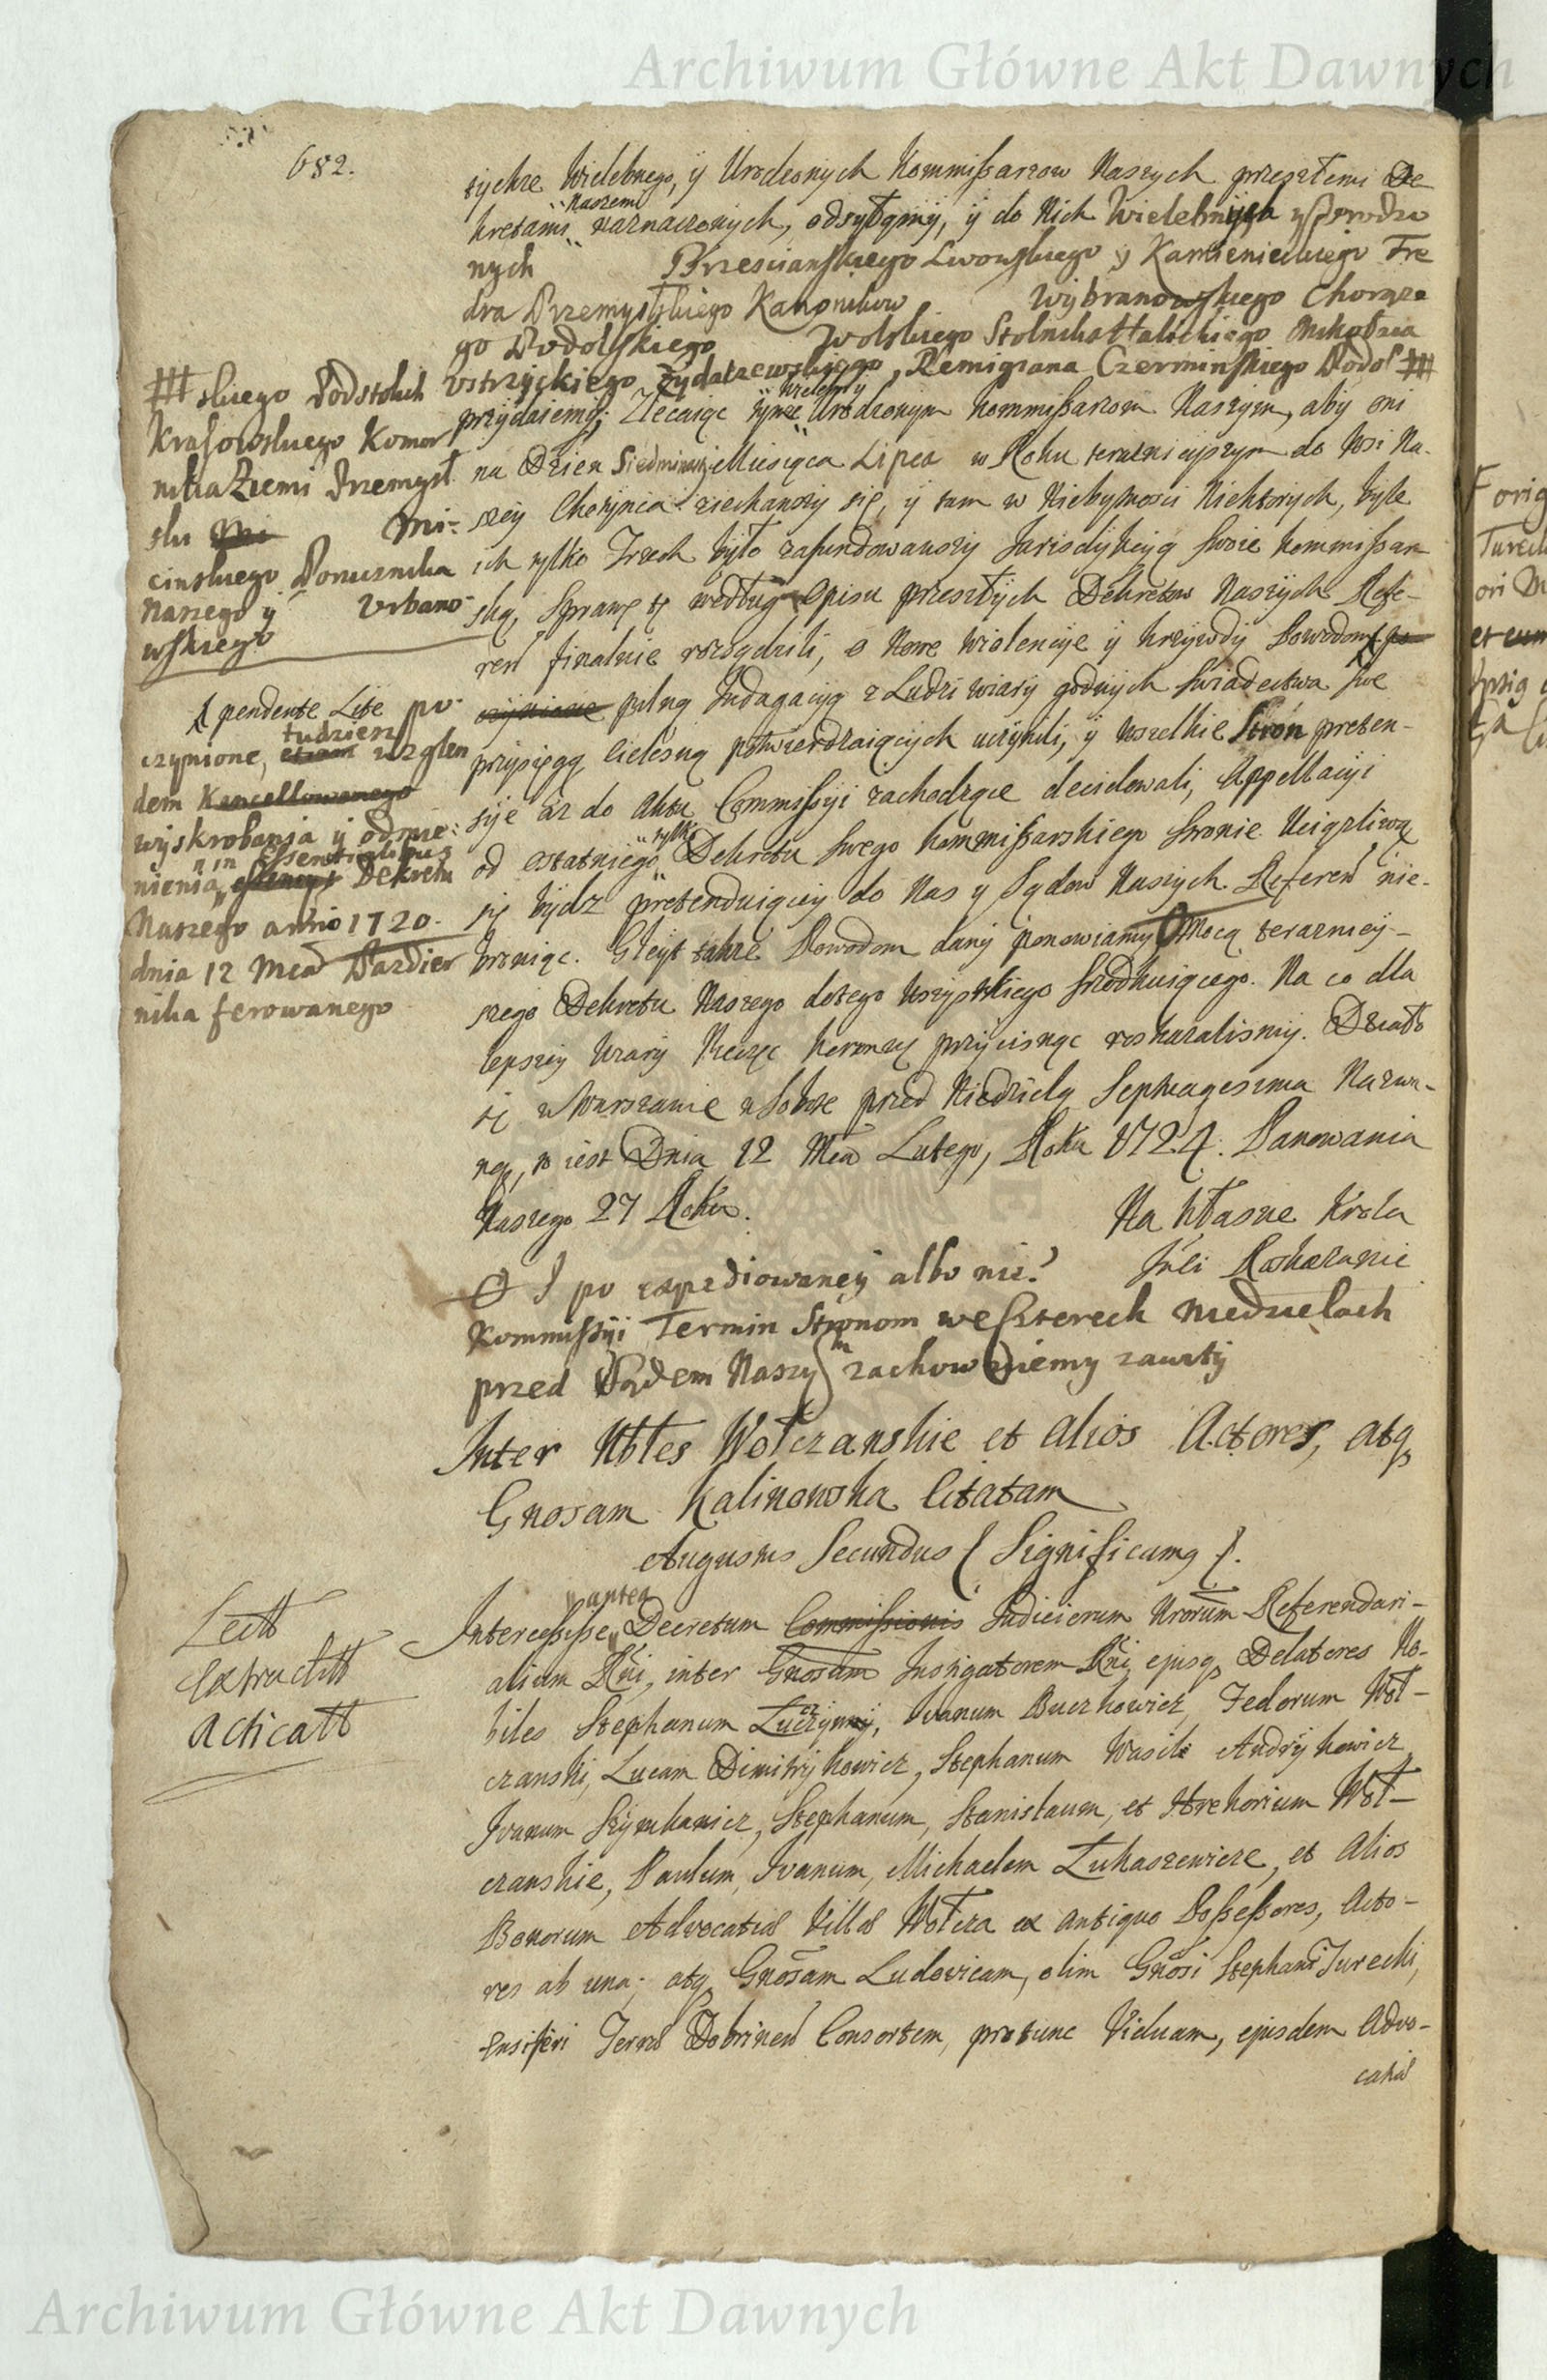 Archiwum Główne Akt Dawnych
682.
tychże Wielebnego, ÿ Urodzonych Kommißarzow Naszych przeszłemi De
kretami Naszemi naznaczonych, odsyłamy, ÿ do Nich Wielebnych y Urodzo
nych Brzescianskiego Lwowskiego y Kamienieckiego Fre
dra Przemyslskiego Kanonikow Wybranowskiego Chorąże
go Podolskiego Wolskiego Stolnika Halickiego Mikołaia
Ustrzyckiego Zydaczewskiego, Remigiana Czerminskiego Podol #
# skiego Podstolich
Krasowskiego Komor
nika Ziemi Przemysl
skii Mi Mi:
cinskiego Porucznika
Naszego ÿ Urbano-
wskiego
przydaiemy; Zlecaiąc tymże Wielebny Urodzonym Kommißarzom Naszym, aby oni
na Dzien Siedminasty Miesiąca Lipca w Roku teraznieyszym do Wsi Na-
szey Chotynca ziechawszy się, ÿ tam w Niebytnosci Niektorych, byle
ich tylko Trzech było zafundowawszy Jurisdykcyą Swoie Kommißar
ską, Sprawę tę według Opisu przeszłych Dekretow Naszych Refe-
reń finalnie rozsądzili, o Nowe Wiolencye ÿ krzywdy Powodom po
czynione pilną Indagacyą z Ludzi wiary godnych swiadectwa swe
przysięgą cielesną potwierdzaiących uczynili, ÿ wszelkie Stron preten-
sye aż do Aktu Commißyi zachodzące decidowali, Appellacyi
od ostatniego tylko Dekretu Swego Kommißarskiego stronie Uciążliwą
się bydz pretenduiącey do Nas y Sądow Naszych Refereń nie-
broniąc. Gleyt także Powodom dany ponawiamy Mocą terazniey-
szego Dekretu Naszego dotego wszystkiego srodkuiącego. Na co dla
lepszey Wiary Pieczęc Koronną przycisnąc roskazalismy. Działo
się w Warszawie w Sobotę przed Niedzielą Septuagesima Nazwa-
ną, to iest Dnia 12 Mca Lutego, Roku 1724. Panowania
Naszego 27 Roku.
pendente Lite po-
czynione, etiam tudziesz wzglen
dem Kancellowanego
wyskrobania ÿ odmie:
nienia in essentialibus essencyi Dekretu
Naszego anno 1720
dnia 12 Mca Pazdier
nika ferowanego
Na Własne Krola
Jmci Roskazanie
I po expediowaney albo nie?
Kommißyi Termin Stronom we Czterech Niedzielach
przed Sądem Naszym zachowuiemy zawity
Inter Nbles Wołczanskie et alios Actores, atq
Gnosam Kalinowska Citatam
Augustus Secundus ( Significamq ).
Lectt
Extractt
Acticatt
Interceßiße antea Decretum Commißionis Judiciorum Nrorum Referendari-
alium Rni, inter Gnosam Instigatorem Rni, ejusq Delatores No-
biles Stephanum Łuczynny, Ivanum Buczkowicz, Fedorum Woł-
czanski, Lucam Dimitrykowicz, Stephanum Wasile Andrykowicz
Ivanum Szymkowicz, Stephanum, Stanislaum, et Hrehorium Woł-
czanskie, Paulum, Ivanum, Michaelem Łukaszewicze, et alios
Bonorum Advocatiæ Villæ Wołcza ex antiquo Poßeßores, Acto-
res ab una; atq Gnosam Ludovicam, olim Gnosi Stephani Turecki,
Ensiferi Terræ Dobrineń Consortem, protunc Viduam, ejusdem Advo-
catiæ
Archiwum Główne Akt Dawnych